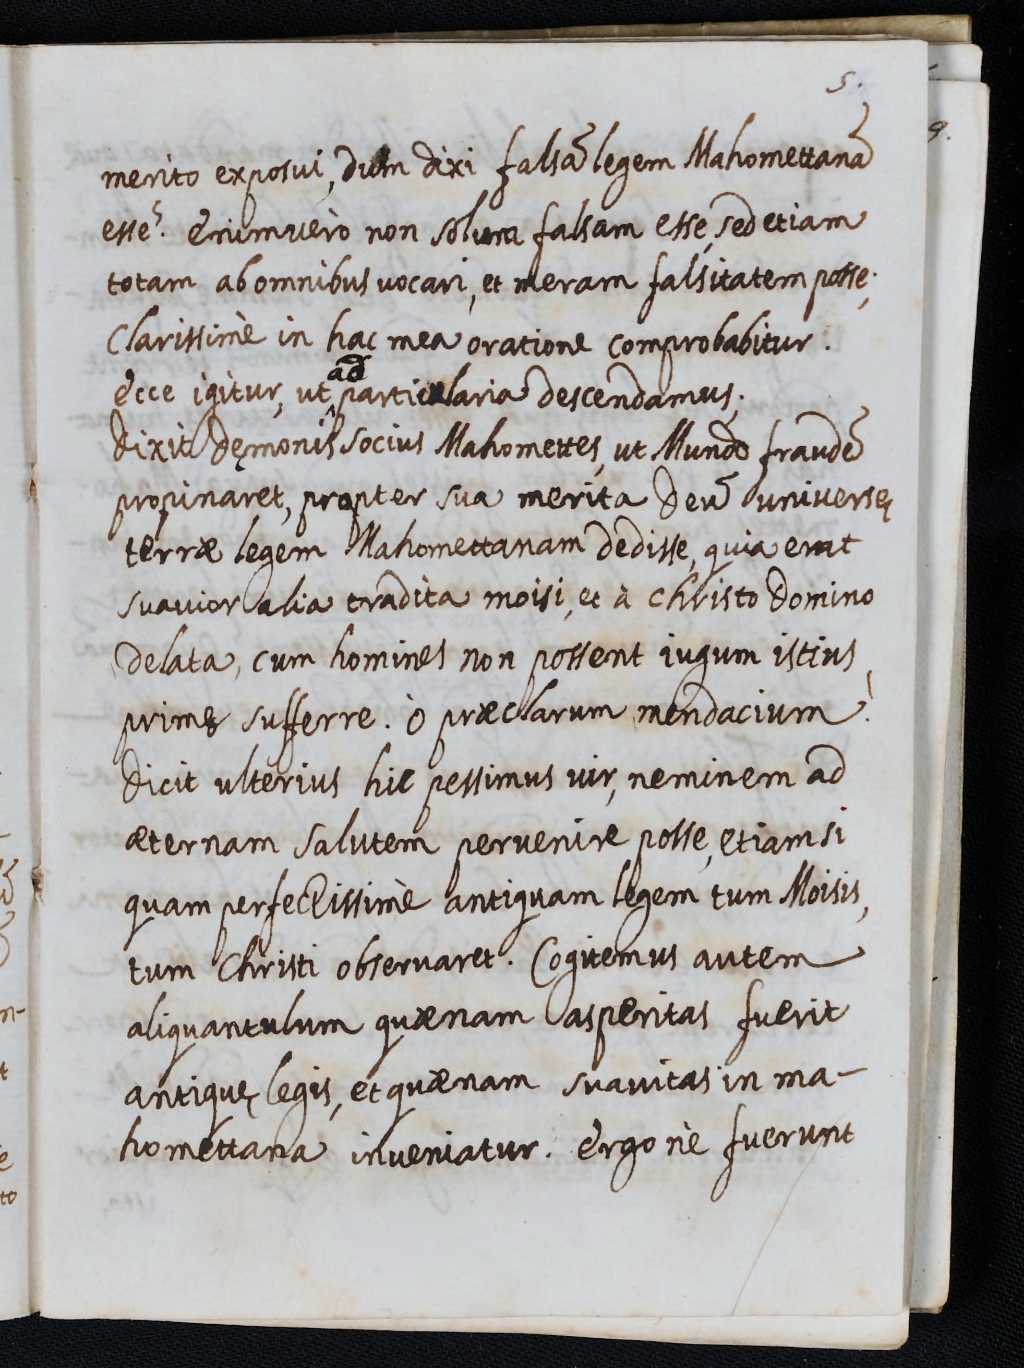 5.
merito exposui, dum dixi falsã legem Mahomettanã
esse. Enimuerò non solum falsam esse, sed etiam
totam ab omnibus uocari, et meram falsitatem posse,
Clarissimè in hac mea oratione comprobabitur.
Ecce igitur, ut ad particularia descendamus,
dixit dęmonis socius Mahomettes, ut Mundo fraudẽ
propinaret, propter sua merita deũ universę
terræ legem Mahomettanam dedisse, quia erat
suavior alia tradita moisi, et à Christo Domino
delata, cum homines non possent iugum istius
primę sufferre. ò præclarum mendacium!
dicit ulterius hic pessimus uir, neminem ad
æternam salutem peruenire posse, etiam si
quam perfectissimè antiquam legem tum Moisis,
tum Christi obseruaret. Cogitemus autem
aliquantulum quænam asperitas fuerit
antiquę legis, et quænam suauitas in ma-
homettana inveniatur. Ergo nè fuerunt
9.